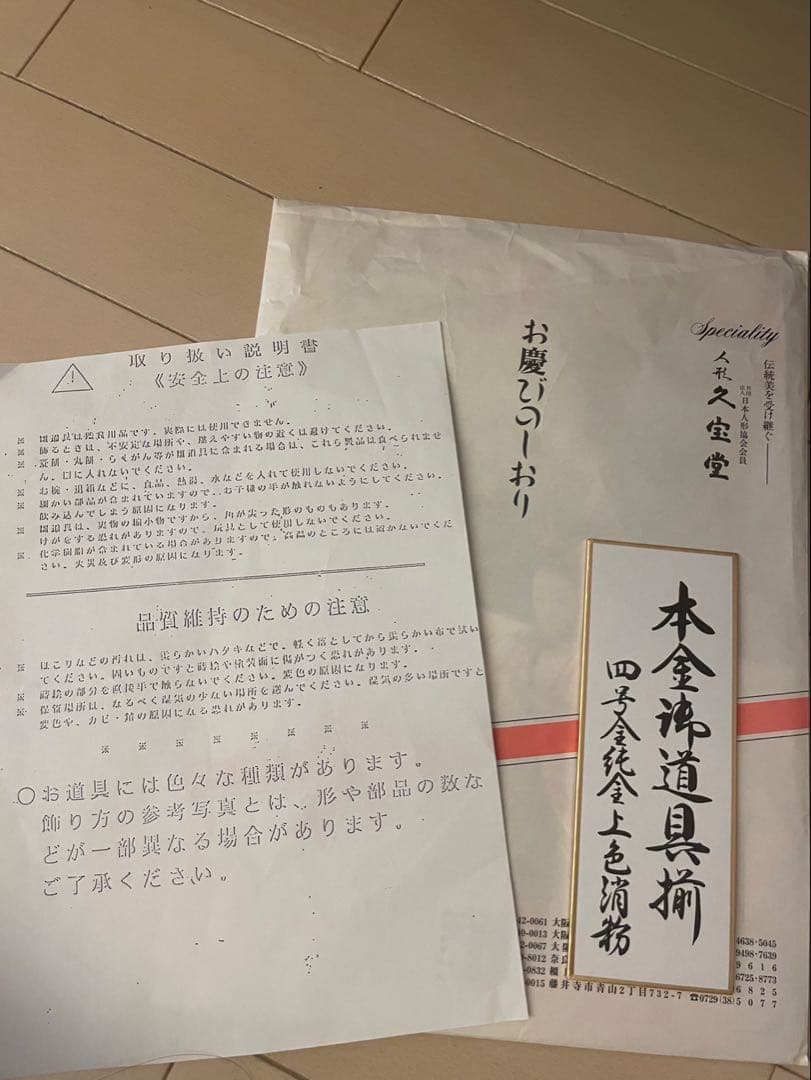 取り扱い説明書
《安全上の注意》
※ 雛道具は鑑賞用品です。実際には使用できません。
※ 飾るときは、不安定な場所や、燃えやすい物の近くは避けてください。
※ 菱餅・丸餅・らくがん等が雛道具に含まれる場合は、これら製品は食べられませ
ん。口に入れないでください。
※ お椀・重箱などに、食品、熱湯、水などを入れて使用しないでください。
※ 細かい部品が含まれていますので、お子様の手が触れないようにしてください。
飲み込んでしまう原因になります。
※ 雛道具は、実物の縮小物ですから、角が尖った形のものもあります。
けがをする恐れがありますので、玩具として使用しないでください。
※ 化学樹脂が含まれている場合がありますので、高温のところには置かないでくだ
さい。火災及び変形の原因になります。
品質維持のための注意
※ ほこりなどの汚れは、柔らかいハタキなどで、軽く落としてから柔らかい布で拭い
てください。固いものですと蒔絵や塗装面に傷がつく恐れがあります。
※ 蒔絵の部分を直接手で触らないでください。変色の原因になります。
※ 保管場所は、なるべく湿気の少ない場所を選んでください。湿気の多い場所ですと
変色や、カビ・錆の原因になる恐れがあります。
※ ※ ※ ※ ※ ※ ※
○お道具には色々な種類があります。
飾り方の参考写真とは、形や部品の数な
どが一部異なる場合があります。
ご了承ください。
お慶びのしおり
Speciality
伝統美を受け継ぐ
社団法人 日本人形協会会員
人形 久宝堂
本金蒔道具揃
四号全純金上色消粉
42-0061 大阪
0-0013 大阪
2-0067 大阪
-8012 奈良
-0832 橿
-0015 藤井寺市青山2丁目732-7 ☎0729(38)5077
4638・5045
9498・7639
9616
6725・8773
6825